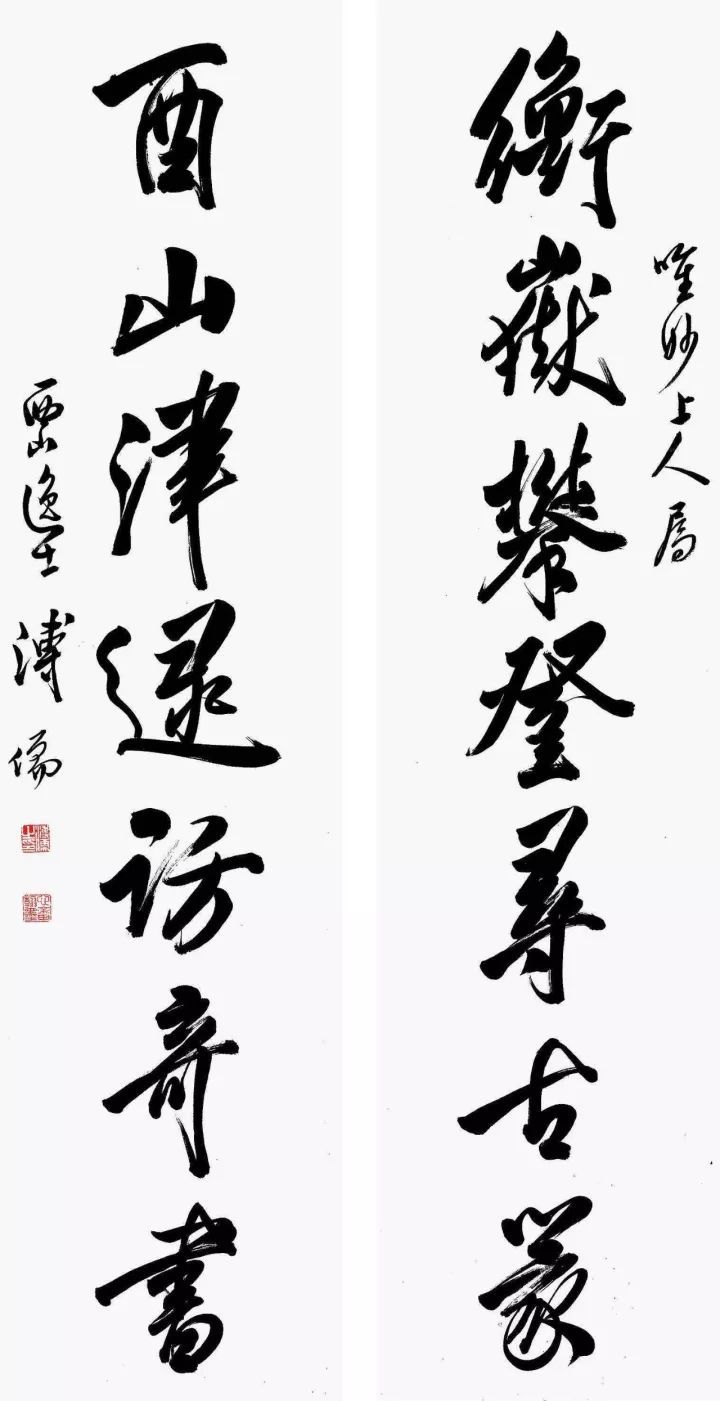 唯妙上人属
衡嶽攀登尋古篆
酉山津逮訪奇書
西山逸士溥儒